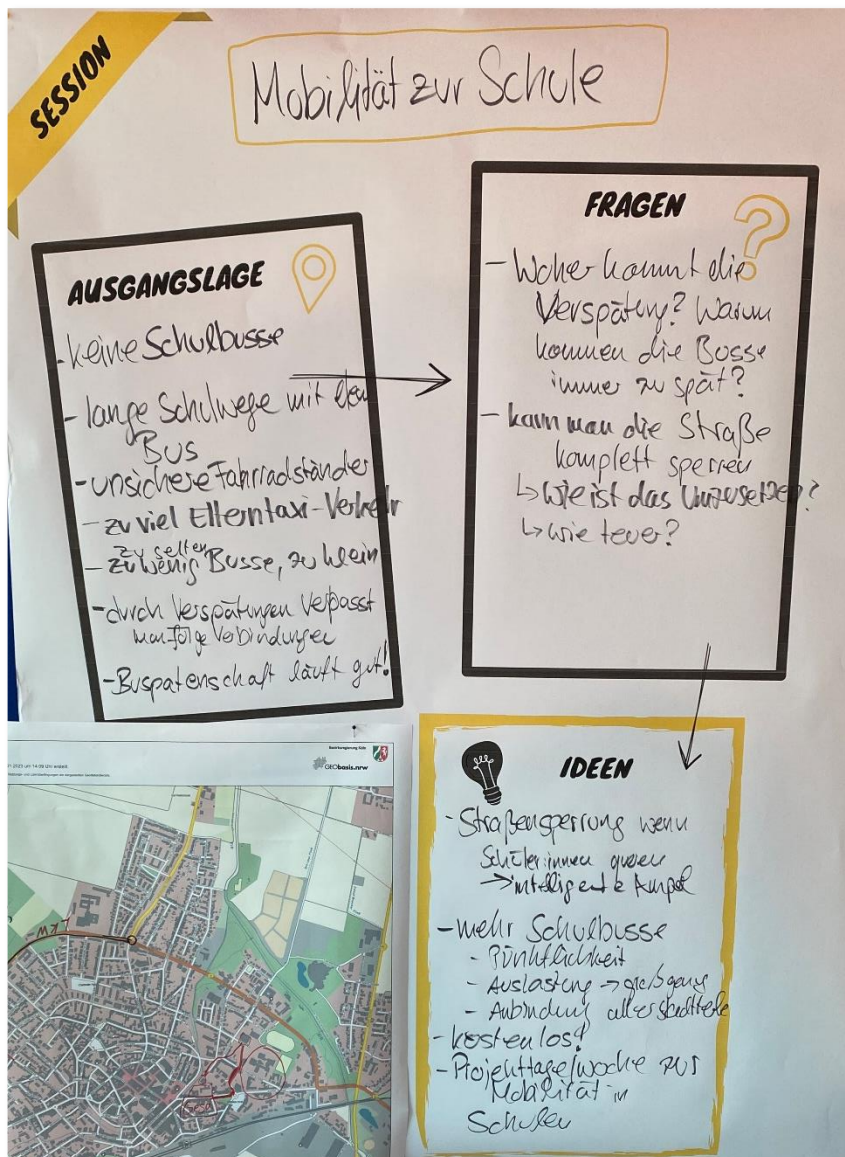 SESSION
Mobilität zur Schule
AUSGANGSLAGE
- keine Schulbusse
- lange Schulwege mit dem
Bus
- unsichere Fahrradständer
- zu viel Elterntaxi-Verkehr
zu selten
- zu wenig Busse, zu klein
- durch Verspätungen verpasst
man Folgeverbindungen
- Buspatenschaft läuft gut!
FRAGEN
- Woher kommt die
Verspätung? Warum
kommen die Busse
immer zu spät?
- kann man die Straße
komplett sperren
↳ Wie ist das Umzusetzen?
↳ wie teuer?
IDEEN
- Straßensperrung wenn
Schüler:innen queren
→ intelligente Ampel
- mehr Schulbusse
- Pünktlichkeit
- Auslastung → groß genug
- Anbindung aller Stadtteile
- kostenlos!
- Projekttage/woche zur
Mobilität in
Schulen
Bezirksregierung Köln
GEObasis.nrw
LKW